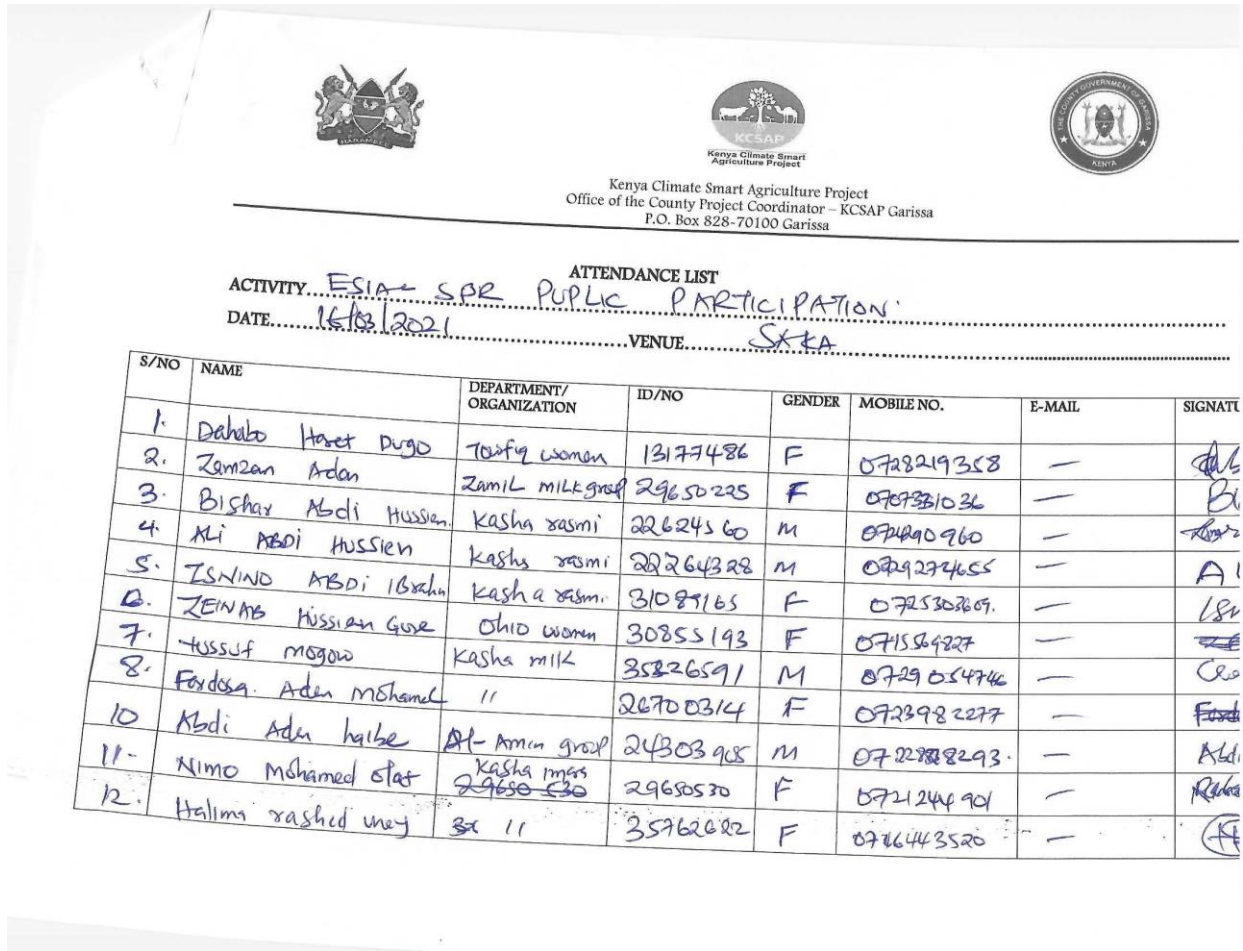 HARAMBEE
KCSAP
Kenya Climate Smart
Agriculture Project
THE COUNTY GOVERNMENT OF GARISSA
KENYA
Kenya Climate Smart Agriculture Project
Office of the County Project Coordinator – KCSAP Garissa
P.O. Box 828-70100 Garissa
ATTENDANCE LIST
ACTIVITY ESIA- SPR PUPLIC PARTICIPATION
DATE 16/03/2021 VENUE
S/NO NAME DEPARTMENT/ ORGANIZATION ID/NO GENDER MOBILE NO. E-MAIL SIGNATU
1. Dahabo Dugo Tawfiq women 13177486 F 0728219358 —
2. Zamzan Adan Zamil milk group 29650225 F 0707331036 —
3. Bishar Abdi Hussien. Kasha rasmi 22624560 M —
4. ALi ABDi HUSSien Kasha rasmi 22264328 M —
5. ISNINO ABDi IBrahn Kasha rasmi. 31089165 F 0725303609. —
6. ZEINAB Hussien Ohio women 30855193 F 0715569827 —
7. Mogow Kasha milk M —
8. Fardosa. Aden Mohamed 11 26700314 F 0723982277 —
10 Abdi Aden halbe Al-Amin group 24303965 M —
11- Nimo Mohamed olat Kasha 29650530 29650530 F 0721244901 —
12. Halima rashed 11 35762622 F 0716443520 —